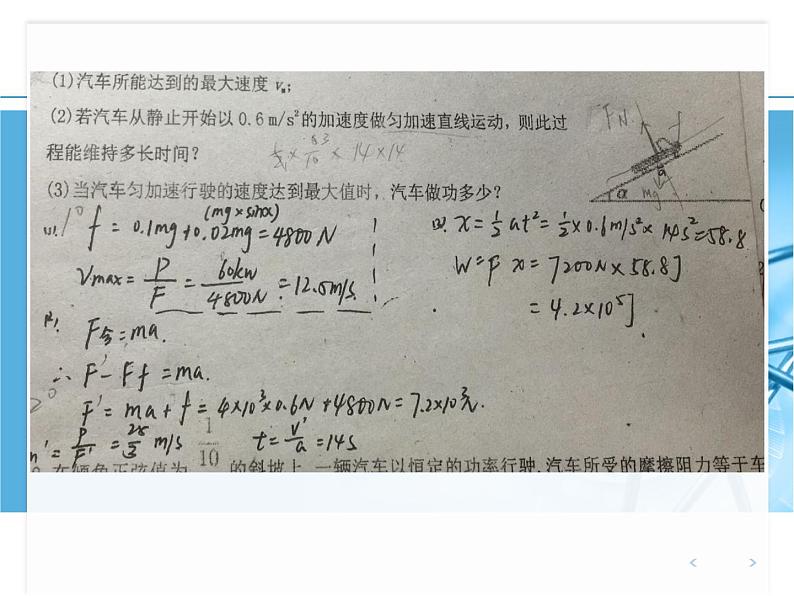 (1)汽车所能达到的最大速度 vₘ；
(2)若汽车从静止开始以 0.6 m/s²的加速度做匀加速直线运动，则此过
程能维持多长时间？
(3)当汽车匀加速行驶的速度达到最大值时，汽车做功多少？
FN
mg
α
(1). 1° f = 0.1mg+0.02mg=4800N
(mg×sinα)
Vmax= P/F = 60kw/4800N = 12.5m/s.
F合=ma.
∴ F'-Ff=ma.
2° F'=ma+f=4×10³×0.6N+4800N=7.2×10³N.
=P/F'=25/3 m/s t=v'/a=14s
x=½at²=½×0.6m/s²×14s²=58.8
W=F x=7200N×58.8J
=4.2×10⁵J
1/10
的斜坡上，一辆汽车以恒定的功率行驶，汽车所受的摩擦阻力等于车